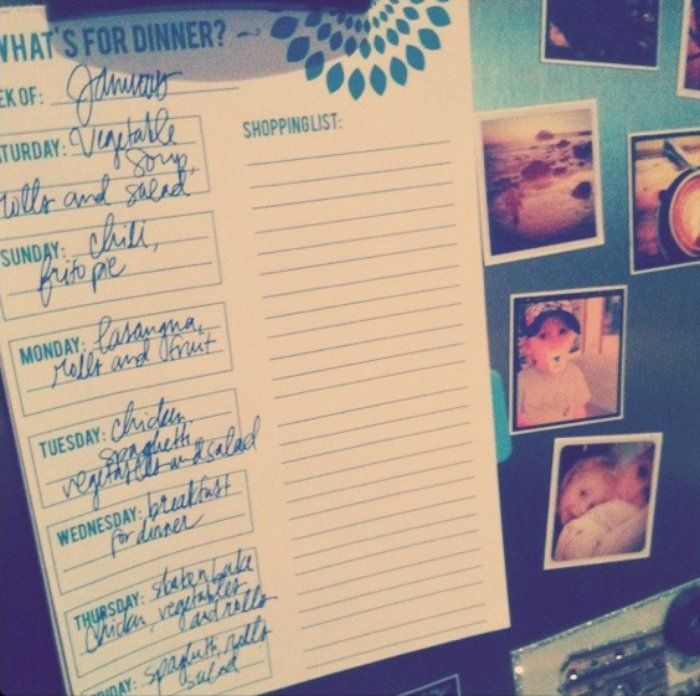 WHAT'S FOR DINNER?
EK OF: January
TURDAY: Vegetable
soup,
rolls and salad
SUNDAY: chili,
frito pie
MONDAY: lasangna,
rolls and fruit
TUESDAY: chicken
spaghetti,
vegetables and salad
WEDNESDAY: breakfast
for dinner
THURSDAY: shake n bake
chicken, vegetables
and rolls
RIDAY: spaghetti, rolls
salad
SHOPPING LIST: